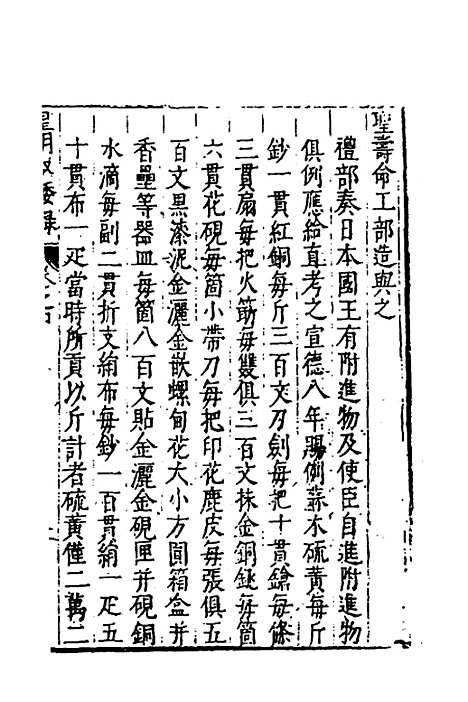 聖壽命工部造與之
禮部奏日本國王有附進物及使臣自進附進物
俱例應給直考之宣德八年賜例蘇木硫黃每斤
鈔一貫紅銅每斤三百文刀劍每把十貫鎗每條
三貫扇每把火筯每雙俱三百文抹金銅銚每箇
六貫花硯每箇小帶刀每把印花鹿皮每張俱五
百文黑漆泥金灑金嵌螺甸花大小方圓箱盒并
香疊等器皿每箇八百文貼金灑金硯匣并硯銅
水滴每副二貫折支絹布每鈔一百貫絹一疋五
十貫布一疋當時所貢以斤計者硫黃僅二萬二
皇明馭倭錄